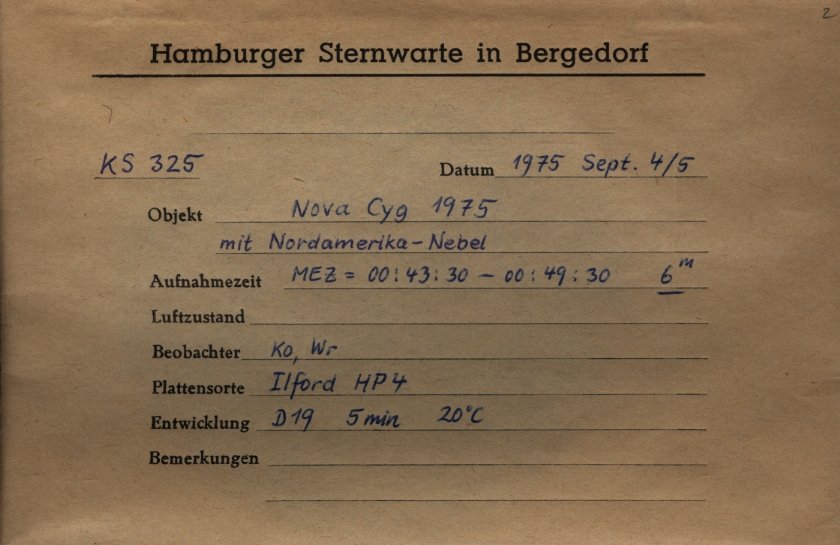 2
Hamburger Sternwarte in Bergedorf
KS 325 Datum 1975 Sept. 4/5
Objekt Nova Cyg 1975
mit Nordamerika-Nebel
Aufnahmezeit MEZ = 00:43:30 - 00:49:30 6ᵐ
Luftzustand
Beobachter Ko, Wr
Plattensorte Ilford HP4
Entwicklung D19 5min 20°C
Bemerkungen